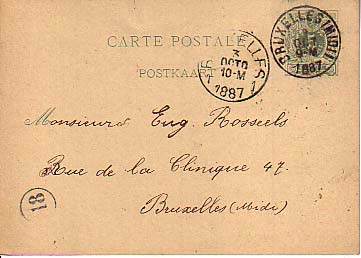 CARTE POSTALE
POSTKAART
BRUXELLES (MIDI)
9-M
1887
BRUXELLES 1
3
OCTO
10-M
1887
Monsieur Eug. Rosseels
Rue de la Clinique 47.
Bruxelles (Midi)
18